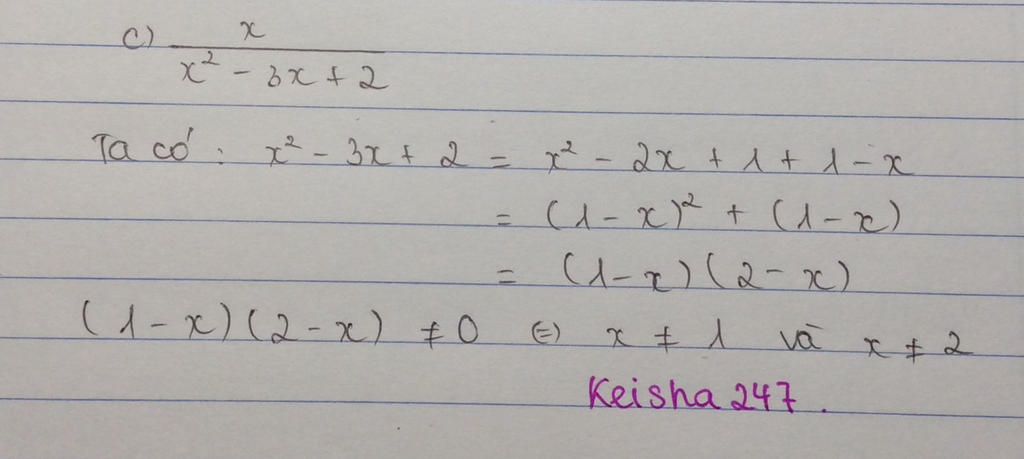 c) x / (x² - 3x + 2)
Ta có: x² - 3x + 2 = x² - 2x + 1 + 1 - x
= (1 - x)² + (1 - x)
= (1 - x)(2 - x)
(1 - x)(2 - x) ≠ 0 ⇔ x ≠ 1 và x ≠ 2
Keisha 247.